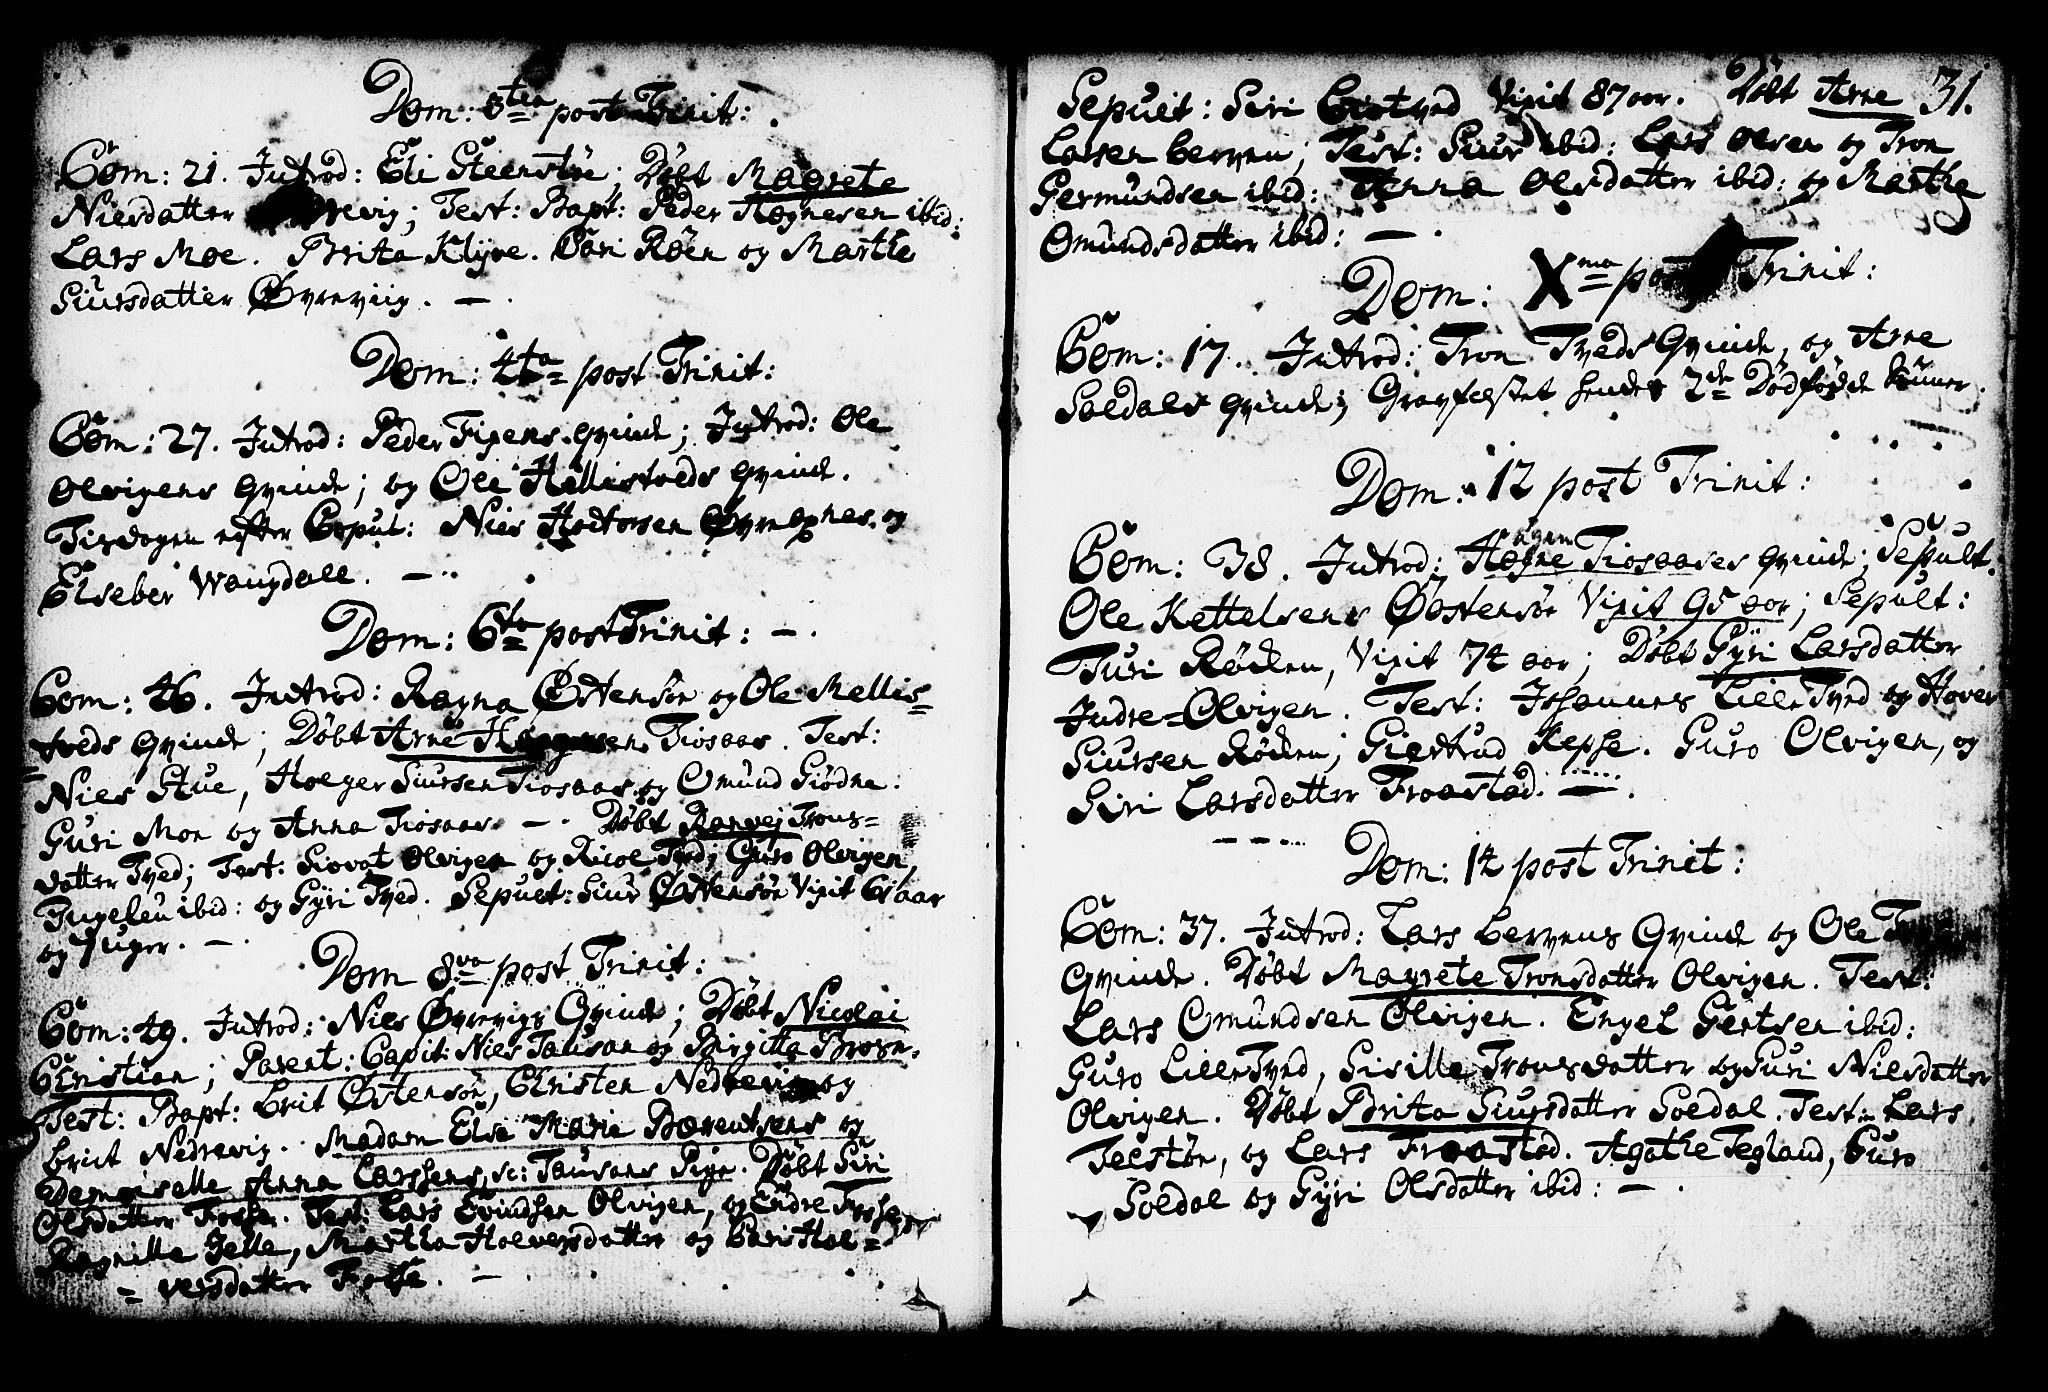 Dom: 3tia post Trinit:
Com: 21. Introd: Eli Steenstøe; Døbt Magrete
Nielsdatter revig; Test: Bapt: Peder Rognesen ibid:
Lars Moe. Brita Klÿve. Cari Røen og Marthe
Siursdatter Øvreviig. —.
Dom: 4ta post Trinit:
Com: 27. Introd: Peder Fixens qvinde; Introd: Ole
Olvigens qvinde; og Ole Hellistveds qvinde.
Tisdagen efter Copul: Niels og
Elseber Wangdall. —
Dom: 6ta post Trinit: —.
Com: 46. Introd: Ragna Østensøe og Ole Mellis=
tveds qvinde; Døbt Arne Tiosaas. Test:
Niels Stue, Holger Siursen Tiosaas og Omund Giødne.
Guri Moe og Anna Tiosaas. —. Døbt Ranvej Trons=
datter Tved; Test: Siovat Olvigen og Nicol Tved; Guro Olvigen,
Ingeleu ibid: og Gÿri Tved. Sepult: Siur Østensøe Vixit 61 aar
og . —.
Dom 8va post Trinit:
Com: 49. Introd: Niels Øvrevigs Qvinde; Døbt Nicolai
Christian; Parent: Capit: Niels Tausan og Birgitta Brosn.
Test: Bapt: Brit Østensøe, Christen Nedrevig og
Briit Nedrevig. Madam Else Marie Barentsens og
Demoiselle Anna Larssens, sc: Tausans Pige. Døbt Siri
Olsdatter Fosse. Test: Lars Evindsen Olvigen, og Endre Fosse
Ragnille Jelle, Martha Holversdatter og Cari Hol=
= versdatter Fosse. —
31.
Sepult: Siri Vixit 87 aar. Døbt Arne
Larsen Berven; Test: Siur ibid: Lars Olsen og Tron
Germundsen ibid: Anna Olsdatter ibid: og Marthe
Omundsdatter ibid: —.
Dom: Xma post Trinit:
Com: 17. Introd: Tron Tveds Qvinde, og Arne
Soldals qvinde; Gravfæstet hendes 2de Dødfødde .
Dom: 12 post Trinit:
Com: 38. Introd: Hogne Tiosaases qvinde; Sepult.
Ole Kettelsens Øostensøe Vixit 95 aar; Sepult:
Turi Røiken, Vixit 74 aar; Døbt Gÿri Larsdatter
Indre=Olvigen. Test: Johannes LilleTved og Hover
Siursen Røiken; Giertrud Kepse. Guro Olvigen, og
Siri Larsdatter Froastad. —.
Dom: 14 post Trinit:
Com: 37. Introd: Lars Bervens Qvinde og Ole
Qvinde. Døbt Magrete Tronsdatter Olvigen. Test:
Lars Omundsen Olvigen. Engel Gertsen ibid:
Guro LilleTved, Sisille Tronsdatter og Guri Nielsdatter
Olvigen. Døbt Brita Siursdatter Soldal. Test: Lars
Telstøe, og Lars Froastad. Agathe Tegland, Guro
Soldal og Gÿri Olsdatter ibid: —.